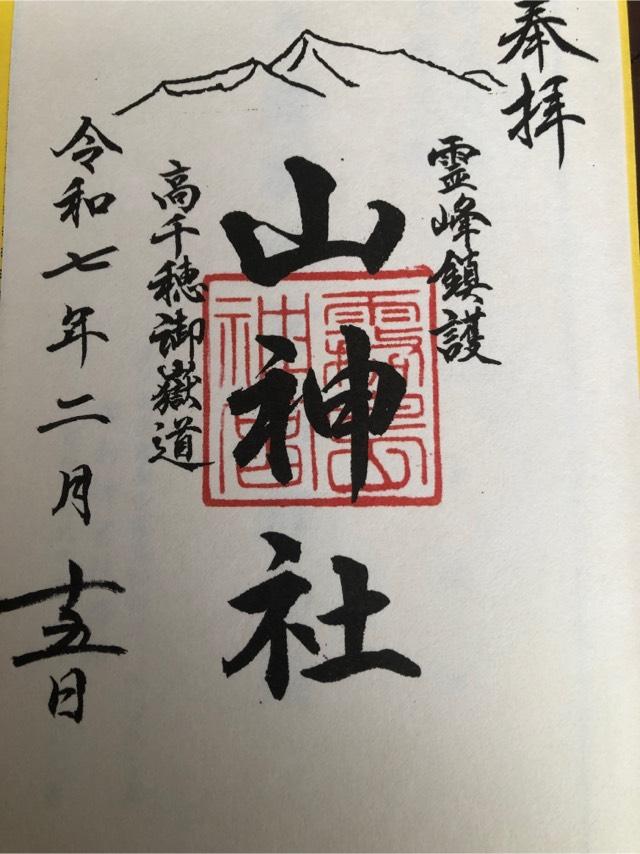 奉拝
霊峰鎮護
山神社
霧島
神宮
高千穂御嶽道
令和七年二月十五日